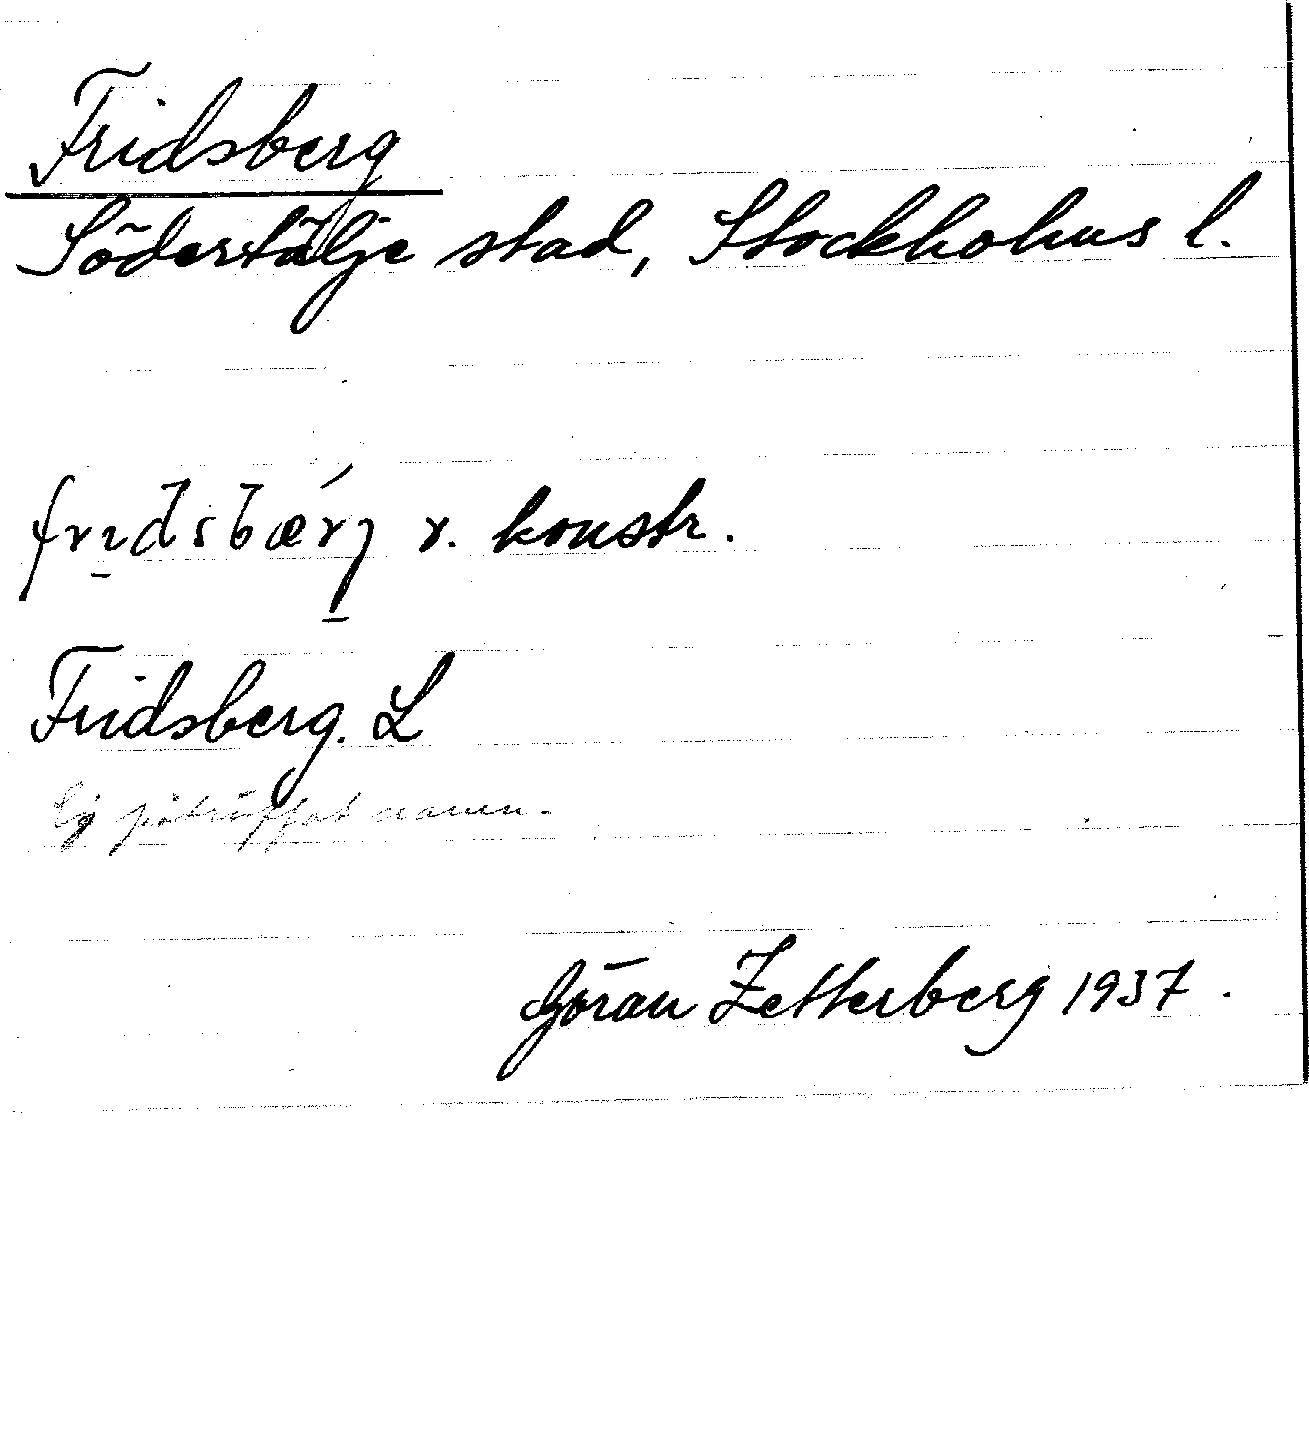 Fridsberg
Södertälje stad, Stockholms l.
frıdsbærj r. konstr.
Fridsberg. L
Ej påträffat namn.
Göran Zetterberg 1937.